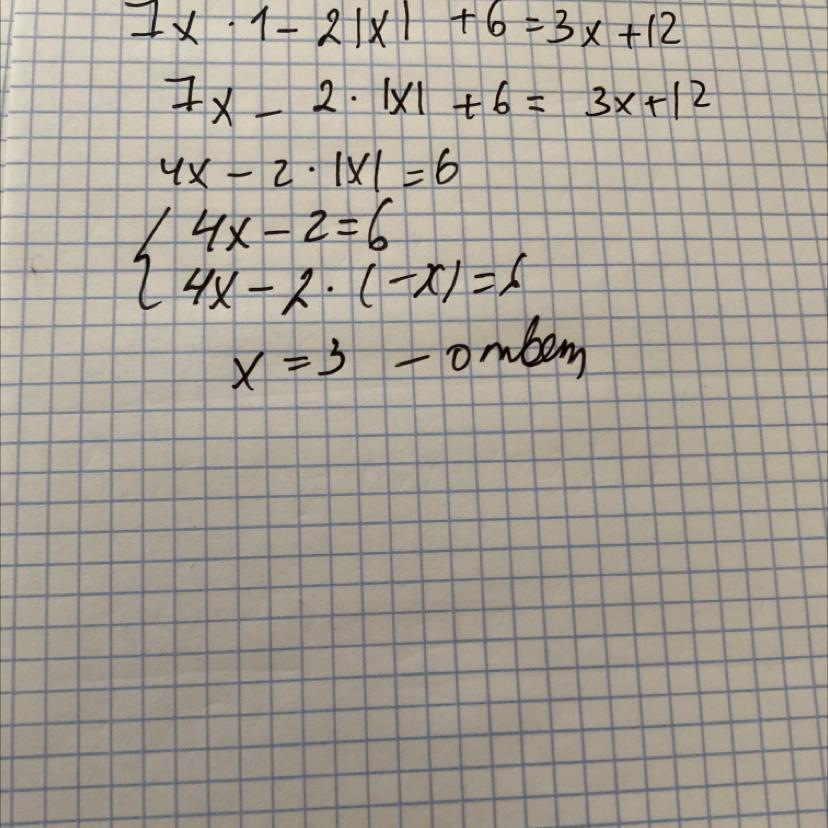 7x · 1 - 2|x| + 6 = 3x + 12
7x - 2 · |x| + 6 = 3x + 12
4x - 2 · |x| = 6
{ 4x - 2 = 6
4x - 2 · (-x) = 6
x = 3 - ответ